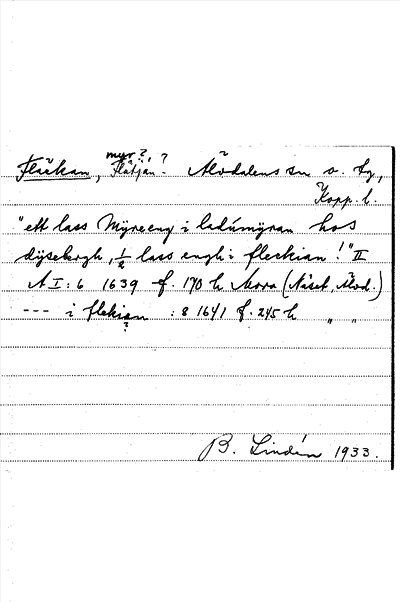 myr?,
Fläckan, Flätjan? Älvdalens sn o. tg,
Kopp. l.
"ett lass Myreeng i ladúmÿran hos
dÿsebergh, 1/2 lass engh i fleckian!" II
A I: 6 1639 f. 170 h Mora (Näset, Älvd.)
--- i flekian : 8 1641 f. 245 h " "
?
B. Lindén 1933.